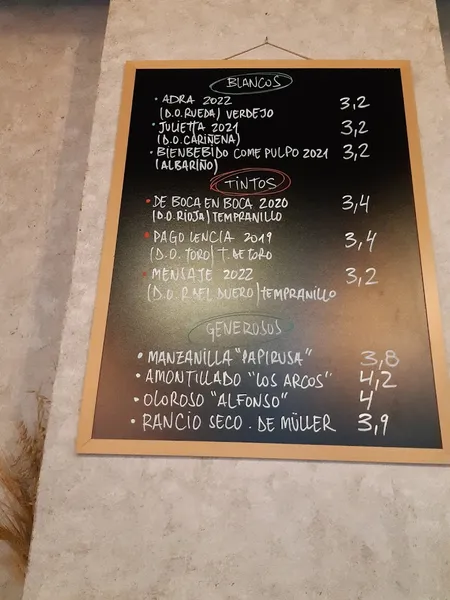 BLANCOS
• ADRA 2022 3,2
(D.O. RUEDA) VERDEJO
• JULIETTA 2021 3,2
(D.O. CARIÑENA)
• BIENBEBIDO COME PULPO 2021 3,2
(ALBARIÑO)
TINTOS
• DE BOCA EN BOCA 2020 3,4
(D.O. RIOJA) TEMPRANILLO
• PAGO LENCIA 2019 3,4
(D.O. TORO) T. DE TORO
• MENSAJE 2022 3,2
(D.O. R. DEL DUERO) TEMPRANILLO
GENEROSOS
• MANZANILLA "PAPIRUSA" 3,8
• AMONTILLADO "LOS ARCOS" 4,2
• OLOROSO "ALFONSO" 4
• RANCIO SECO. DE MÜLLER 3,9